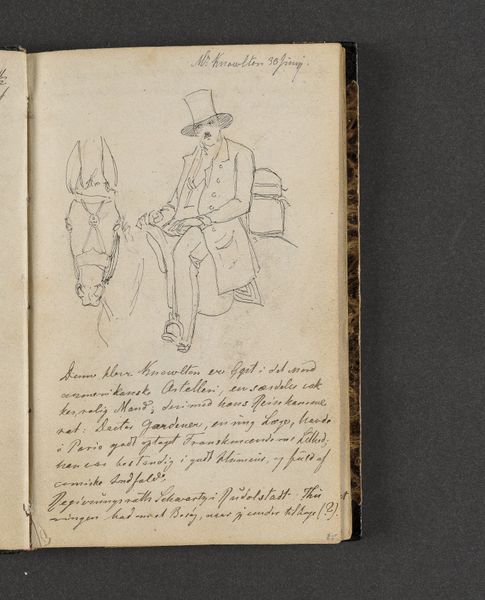 Mr Knowlton 30 Junij.
Denne Herr Knowlton er Capt: i det Nord
amerikanske Artelleri, en særdeles vak
ker, rolig Mand, derimod hans Reisekamme
rat: Doctor Gardener, en ung Læge, havde
i Paris godt optaget Franskmændenes Lethed,
han var bestandig i godt Humeur, og fuld af
comiske Indfald.
Regierungsrath Schwartz i Rudolstadt. Thü
ringen bad mod Besøg, naar jeg vender tilbage (?).